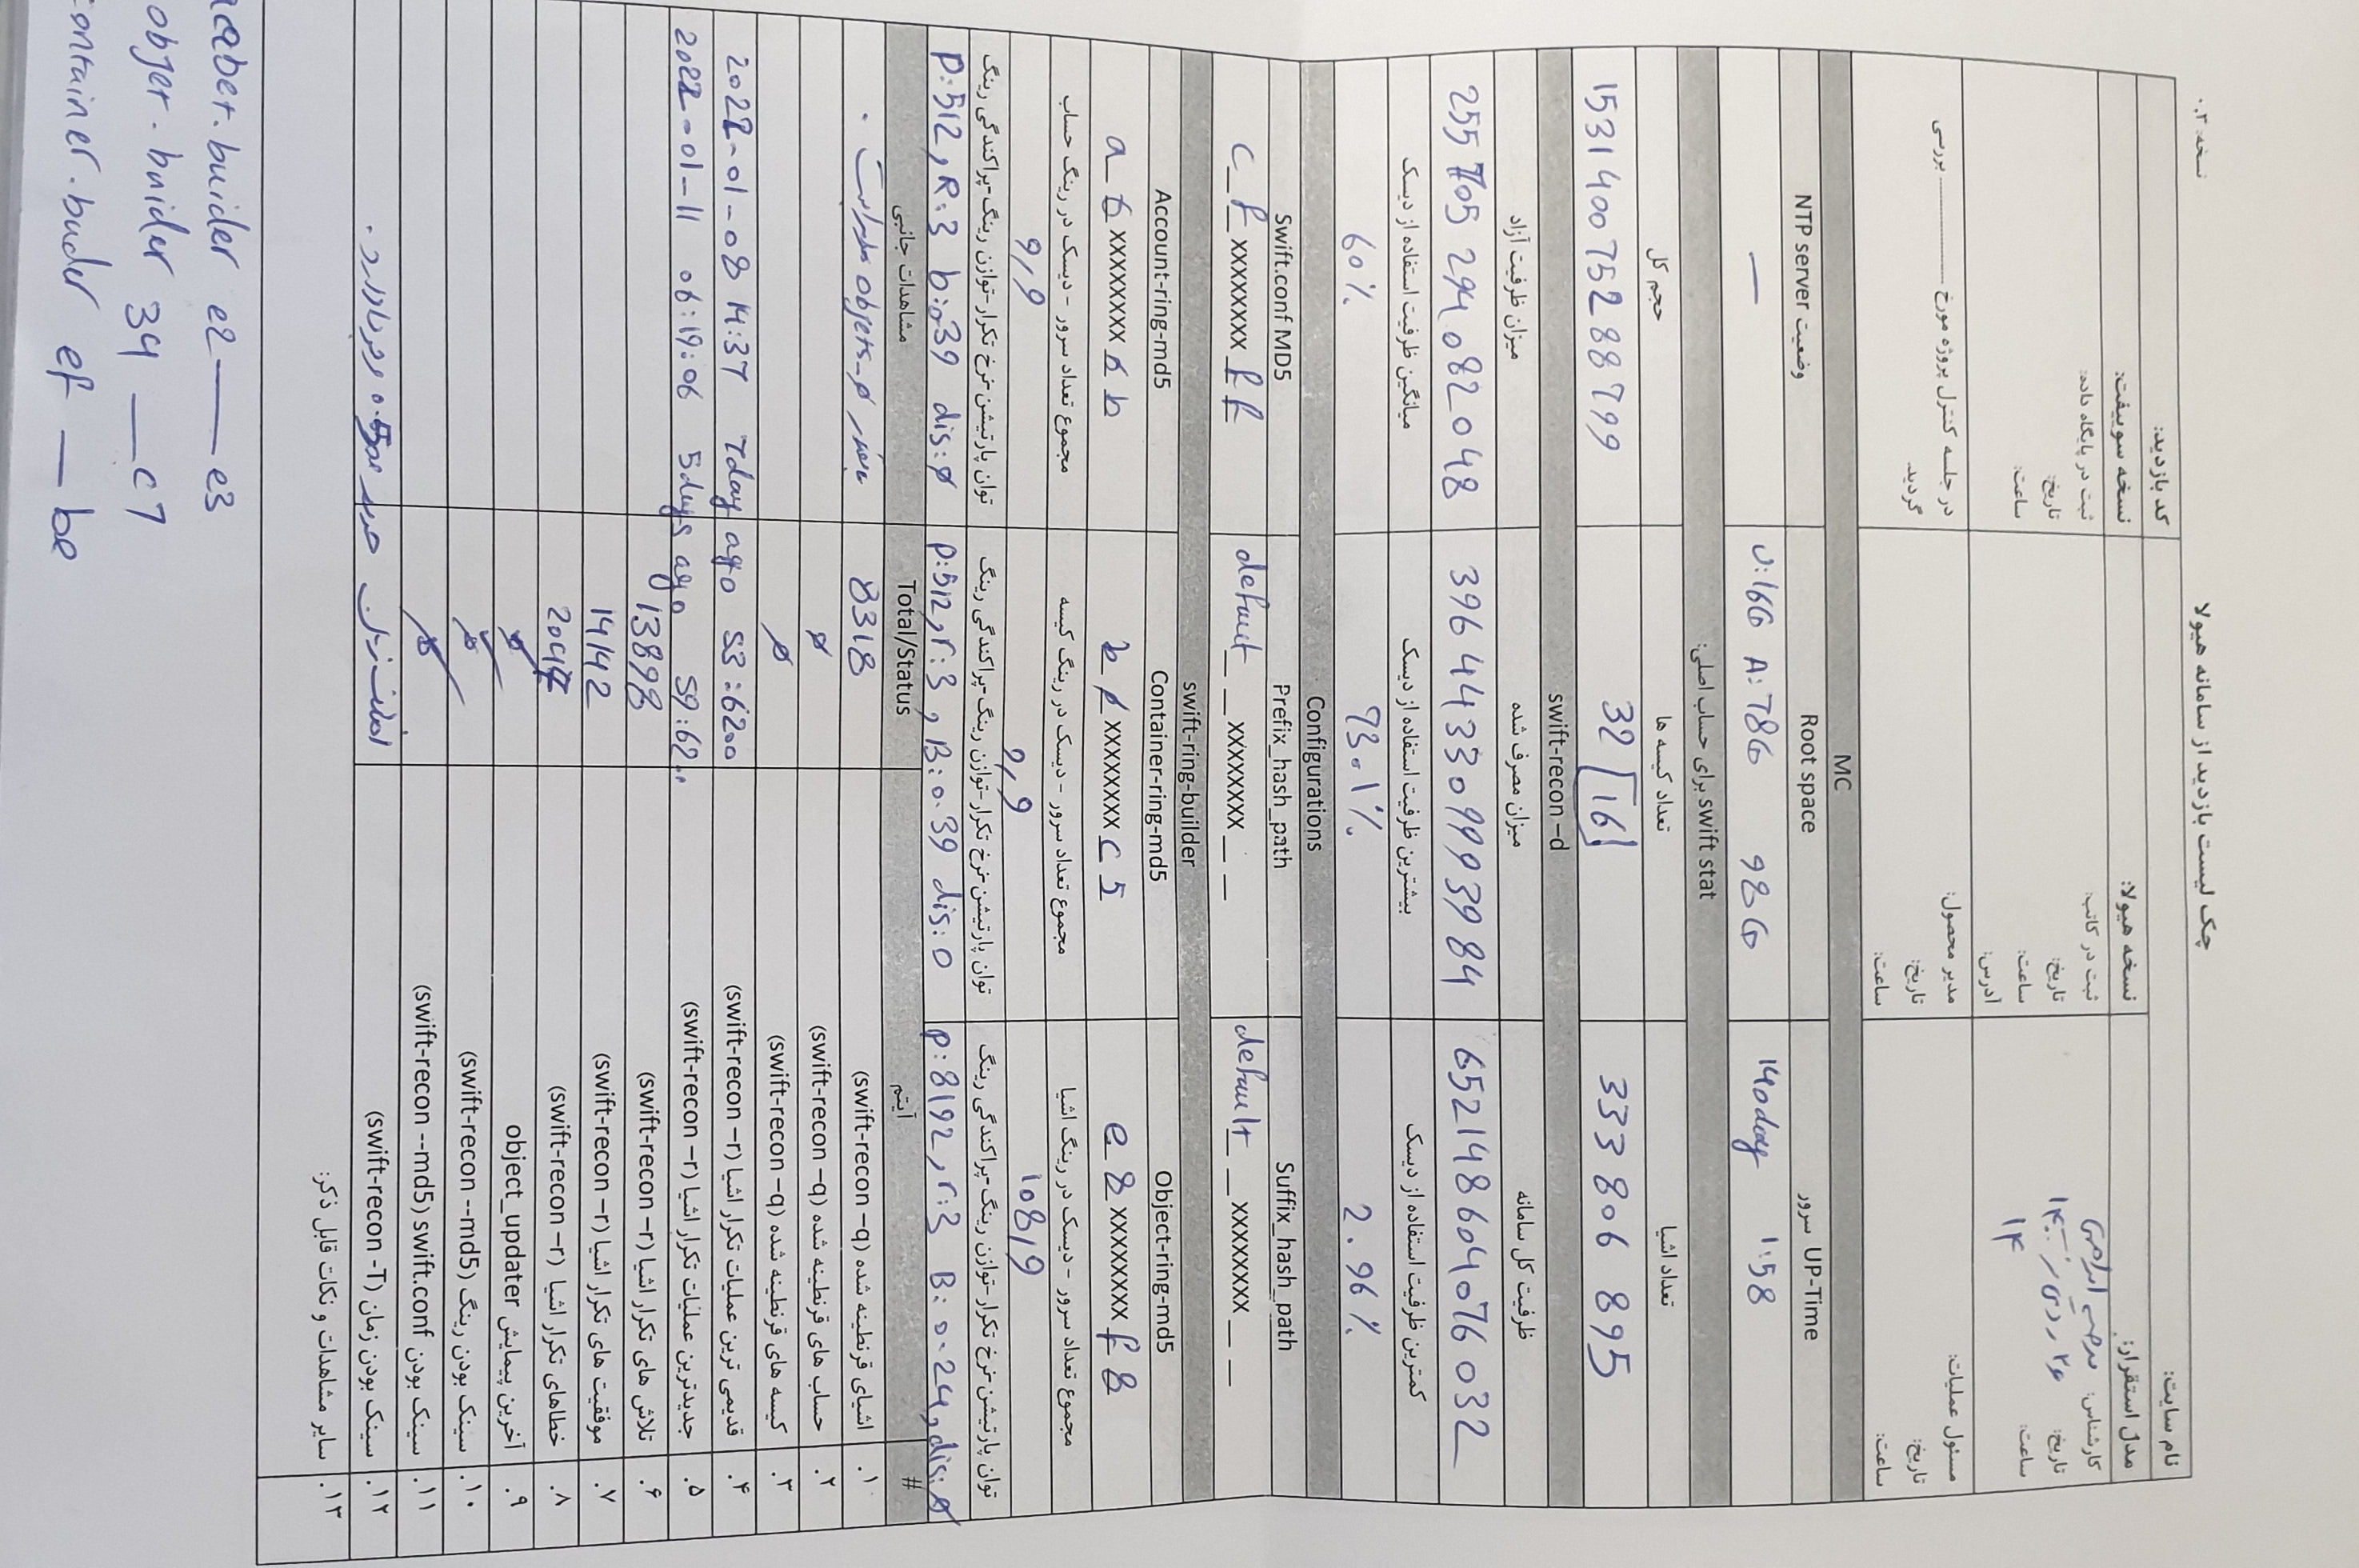 چک لیست بازدید از سامانه هیولا
نسخه: ۲.۰
نام سایت:
کد بازدید:
مدل استقرار:
نسخه هیولا:
نسخه سوئیفت:
کارشناس:
تاریخ:
ساعت: ۱۴
ثبت در کاتب:
تاریخ:
ساعت:
آدرس:
ثبت در پایگاه داده:
تاریخ:
ساعت:
مسئول عملیات:
تاریخ:
ساعت:
مدیر محصول:
تاریخ:
ساعت:
در جلسه کنترل پروژه مورخ ـــــــــ بررسی
گردید.
MC
UP-Time سرور
Root space
وضعیت NTP server
140day 1:58
U:16G A:78G 98G
—
swift stat برای حساب اصلی:
تعداد اشیا
تعداد کیسه ها
حجم کل
333 806 895
32 161
1531400752888799
swift-recon –d
ظرفیت کل سامانه
میزان مصرف شده
میزان ظرفیت آزاد
652148604076032
396443309993984
255705294082048
کمترین ظرفیت استفاده از دیسک
بیشترین ظرفیت استفاده از دیسک
میانگین ظرفیت استفاده از دیسک
2.96%
73.1%
60%
Configurations
Suffix_hash_path
Prefix_hash_path
Swift.conf MD5
default_ _xxxxxxxx_ _
default_ _xxxxxxxx_ _
c f xxxxxxxx f f
swift-ring-builder
Object-ring-md5
Container-ring-md5
Account-ring-md5
e 8 xxxxxxxx f 8
xxxxxxxx c 5
a 6 xxxxxxxx 6 b
مجموع تعداد سرور – دیسک در رینگ اشیا
مجموع تعداد سرور – دیسک در رینگ کیسه
مجموع تعداد سرور – دیسک در رینگ حساب
108,9
9,9
9,9
توان پارتیشن-نرخ تکرار-توازن رینگ-پراکندگی رینگ
توان پارتیشن-نرخ تکرار-توازن رینگ-پراکندگی رینگ
توان پارتیشن-نرخ تکرار-توازن رینگ-پراکندگی رینگ
p:8192,r:3 B:0.24,dis:ø
p:512,r:3,B:0.39 dis:0
P:512,R:3 b:.39 dis:ø
# آیتم Total/Status مشاهدات جانبی
۱. اشیای قرنطینه شده (swift-recon –q) 8318 objects
۲. حساب های قرنطینه شده (swift-recon –q) ø
۳. کیسه های قرنطینه شده (swift-recon –q) ø
۴. قدیمی ترین عملیات تکرار اشیا (swift-recon –r) 2022-01-08 14:37 7day ago S3:6200
۵. جدیدترین عملیات تکرار اشیا (swift-recon –r) 2022-01-11 06:19:06 5days ago S9:62..
۶. تلاش های تکرار اشیا (swift-recon –r) 13898
۷. موفقیت های تکرار اشیا (swift-recon –r) 14142
۸. خطاهای تکرار اشیا (swift-recon –r)
۹. آخرین پیمایش object_updater
۱۰. سینک بودن رینگ (swift-recon --md5)
۱۱. سینک بودن swift.conf (swift-recon --md5)
۱۲. سینک بودن زمان (swift-recon -T)
۱۳. سایر مشاهدات و نکات قابل ذکر:
buider e2 — e3
objer.buider 34 — c7
ontainer.buder ef — be